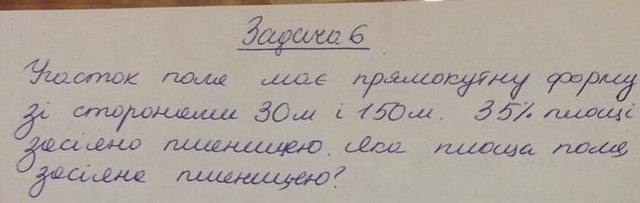 Задача 6
Участок поля має прямокутну форму
зі сторонами 30м і 150м. 35% площі
засіяно пшеницею. Яка площа поля
засіяна пшеницею?